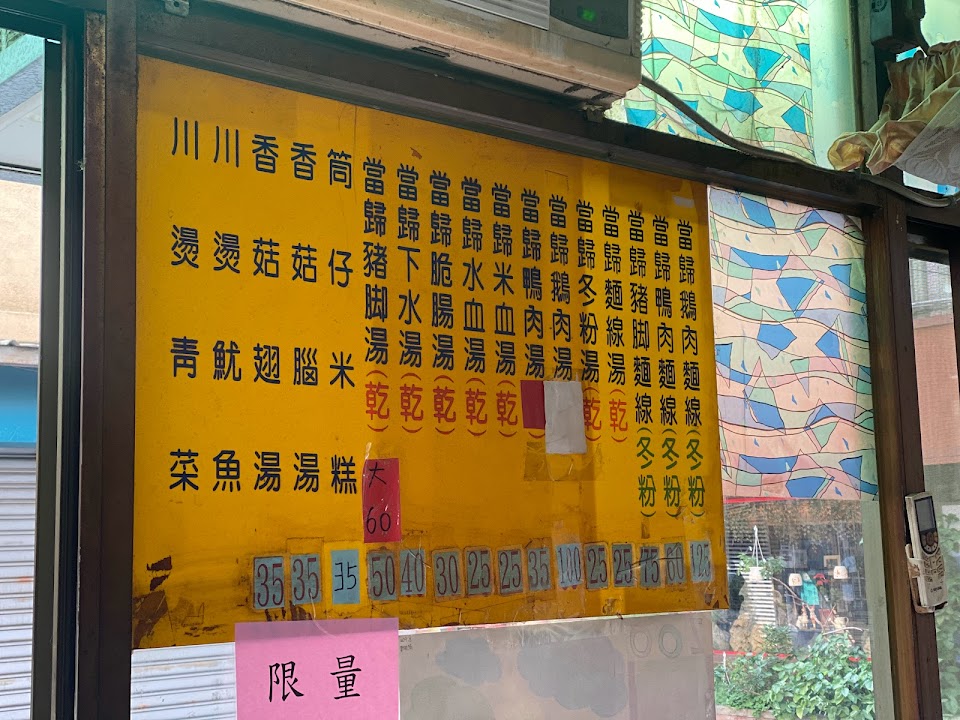 當歸鵝肉麵線(冬粉) 125
當歸鴨肉麵線(冬粉) 60
當歸豬脚麵線(冬粉) 75
當歸麵線湯(乾) 25
當歸冬粉湯(乾) 25
當歸鵝肉湯 100
當歸鴨肉湯 35
當歸米血湯(乾) 25
當歸水血湯(乾) 25
當歸脆腸湯(乾) 30
當歸下水湯(乾) 40
當歸豬脚湯(乾) 大60 50
筒仔米糕 35
香菇腦湯 35
香菇翅湯 35
川燙魷魚
川燙青菜
限量